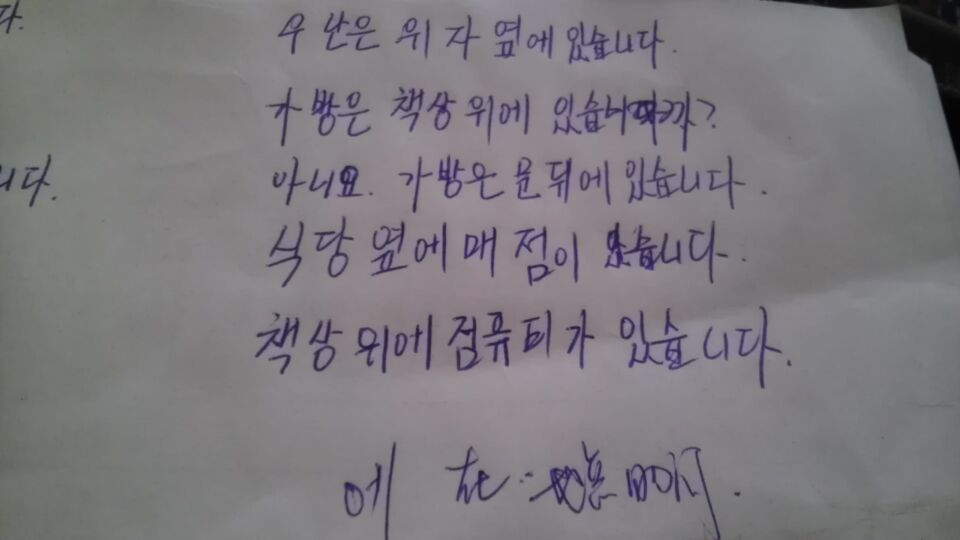 다.
우 난은 위 자 옆에 있습니다.
가 방은 책상 위에 있습니까?
니다.
아니요. 가 방은 문 뒤에 있습니다.
식당 옆에 매 점이 있습니다.
책상 위에 점퓨티가 있습니다.
에 在